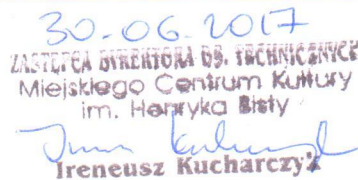 30-06.2017
ZASTĘPCA DYREKTORA DS. TECHNICZNYCH
Miejskiego Centrum Kultury
im. Henryka Bisty
Ireneusz Kucharczyk